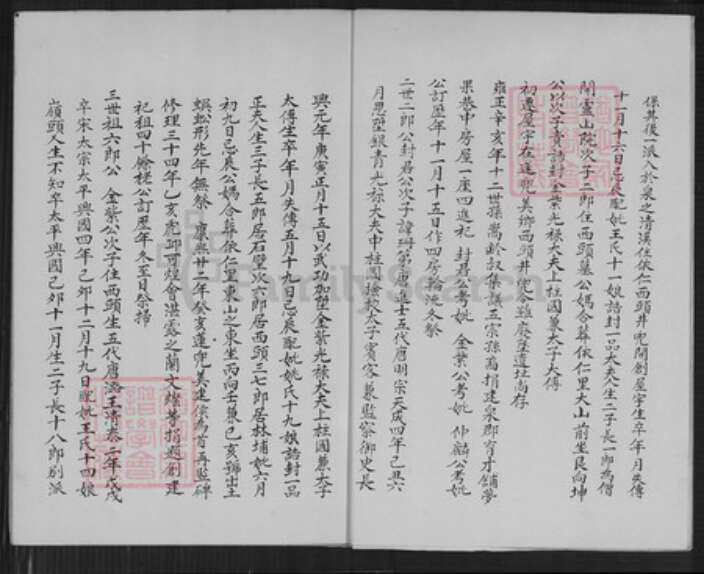 保其後一派入於泉之清溪住依仁西頭井兜開創屋宇生卒年月失傳
十一月十六日忌辰配妣王氏十一娘誥封一品夫人生二子長一郎為僧
開靈山院次子二郎住西頭墓公媽合葬依仁里大山前坐艮向坤
公以次子貴誥封金紫光祿大夫上柱國兼太子太傅
初遷屋宇在進兜美鄉西頭井兜今雖廢墜遺址尚存
雍正辛亥年十二世孫嵩齡叔集議五宗孫裔捐建泉郡育才舖夢
果巷中房屋一座四進祀 封君公考妣 金紫公考妣 仲麟公考妣
公訂歷年十一月十五日作四房輪流冬祭
二世二郎公封君公次子諱 第唐進士五代唐明宗天成四年己丑六
月恩蔭銀青光祿大夫中柱國檢校太子賓客兼監察御史長
興元年庚寅正月十五日以武功加陞金紫光祿大夫上柱國兼太子
太傅生卒年月失傳五月十九日忌辰配妣姚氏十九娘誥封一品
正夫人生三子長五郎居石壁次六郎居西頭三七郎居林埔妣六月
初九日忌辰公媽合葬依仁里東山之東坐丙向壬兼巳亥號出土
蜈蚣形先年無祭 康熙廿二年癸亥蓮兜美建侯為首再竪碑
修理三十四年乙亥虎邱可煌會洪雲之蘭文燦等捐題創建
祀租四十餘栳公訂歷年冬至日祭掃
三世祖六郎公 金紫公次子住西頭生五代唐潞王清泰二年戊戌
卒宋太宗太平興國四年己卯十二月十九日配妣王氏十四娘
嶺頭人生不知卒太平興國己卯十一月生二子長十八郎別派
FamilySearch